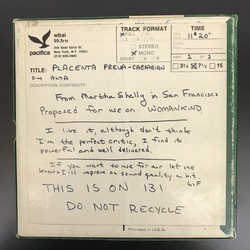 wbai
99.5FM
pacifica
TRACK FORMAT
FULL
STEREO
MONO
DOLBY
TIME
11'20"
PART 1 - 1
3¾ 7½ 15
TITLE: PLACENTA PREVIA-CAESARIAN
DESCRIPTION; CONTINUITY:
From Martha Shelly in San Francisco
Proposed for use on WOMANKIND.
I like it, although don't think
I'm the perfect critic, I find it
powerful and well delivered.
If you want to use for air let me
know & I'll improve on sound quality a bit.
THIS IS ON 131
DO NOT RECYCLE
Printed in U.S.A.